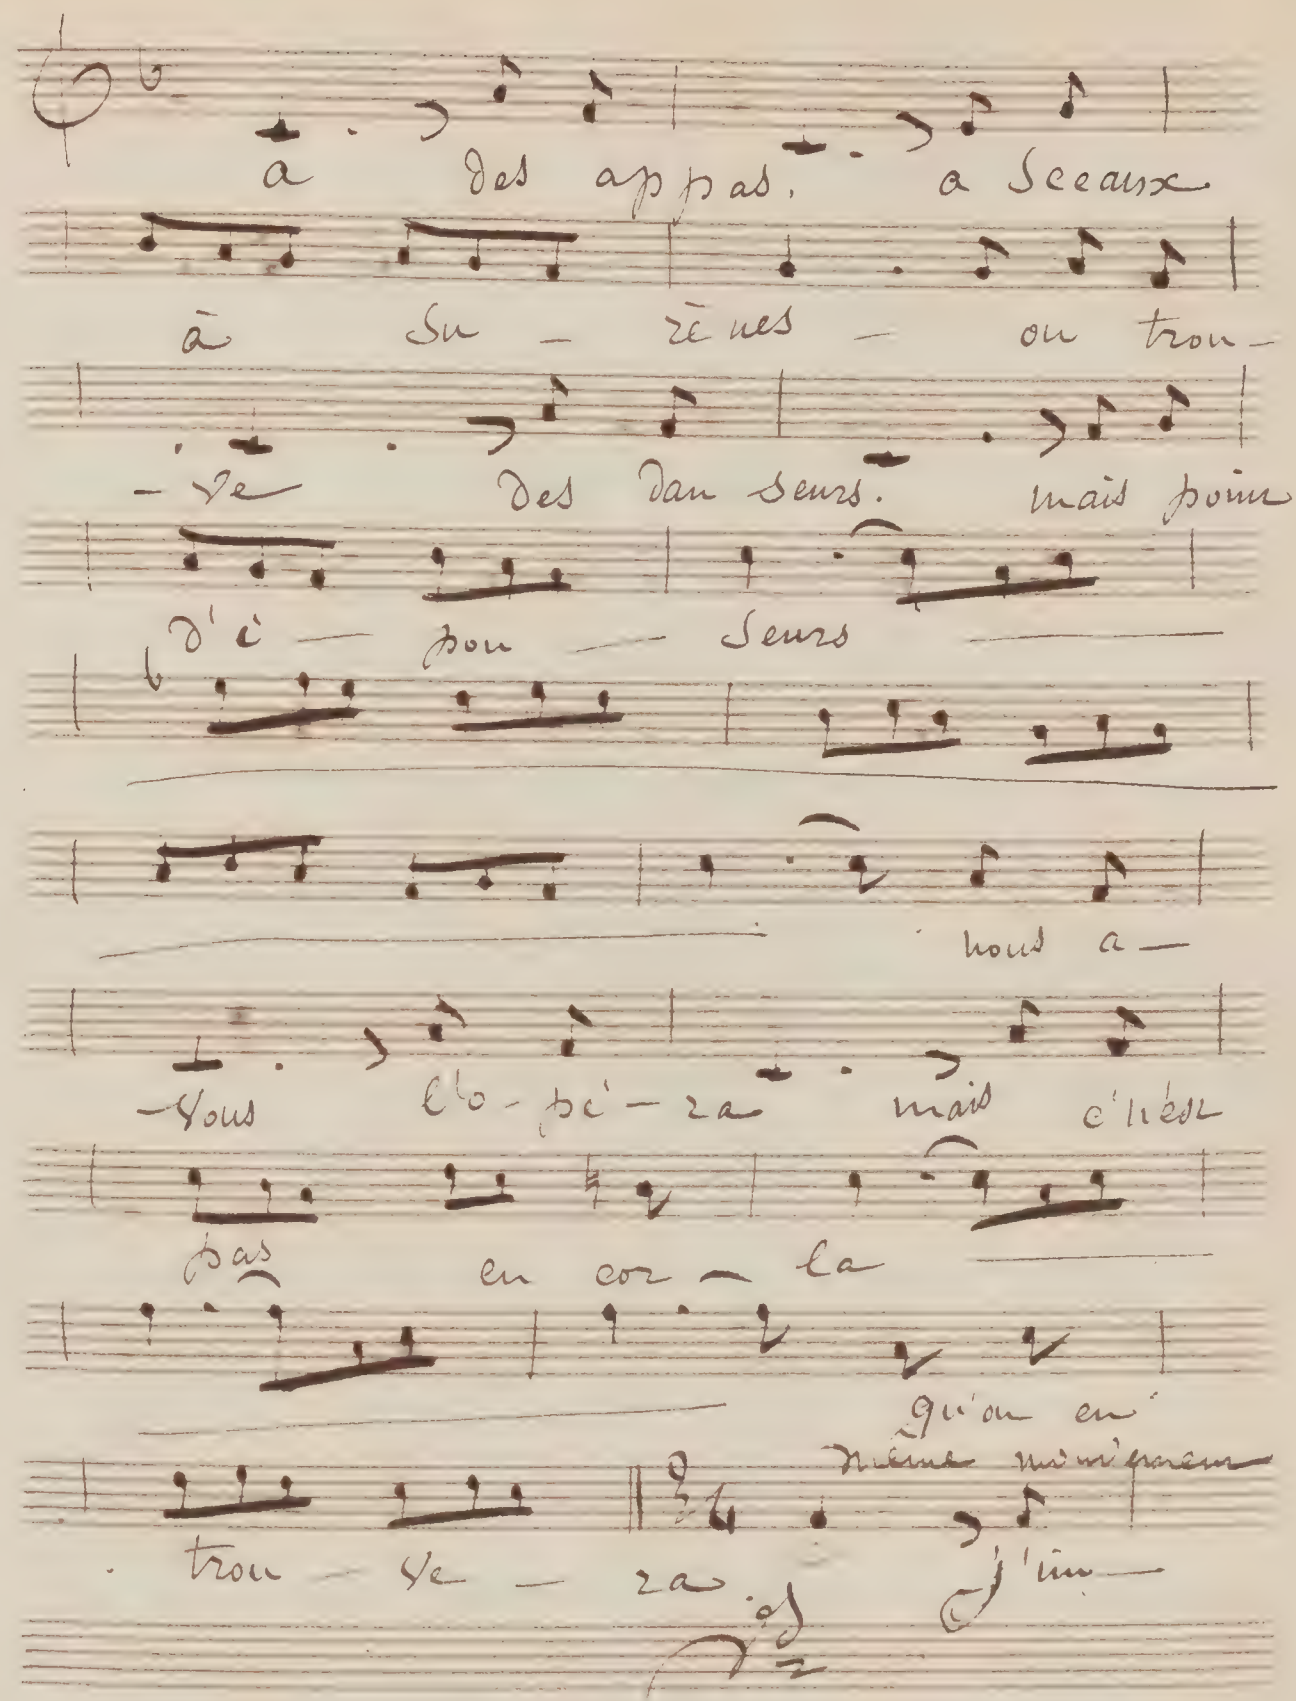 a des appas. a Sceaux
à Su - rênes - on trou -
- ve des dan seurs. mais point
d'é - pou - seurs -
nous a -
- vons l'o - pé - ra mais c'n'est
pas en cor - la
qu'on en
même mouvement
trou - ve - ra j'im -